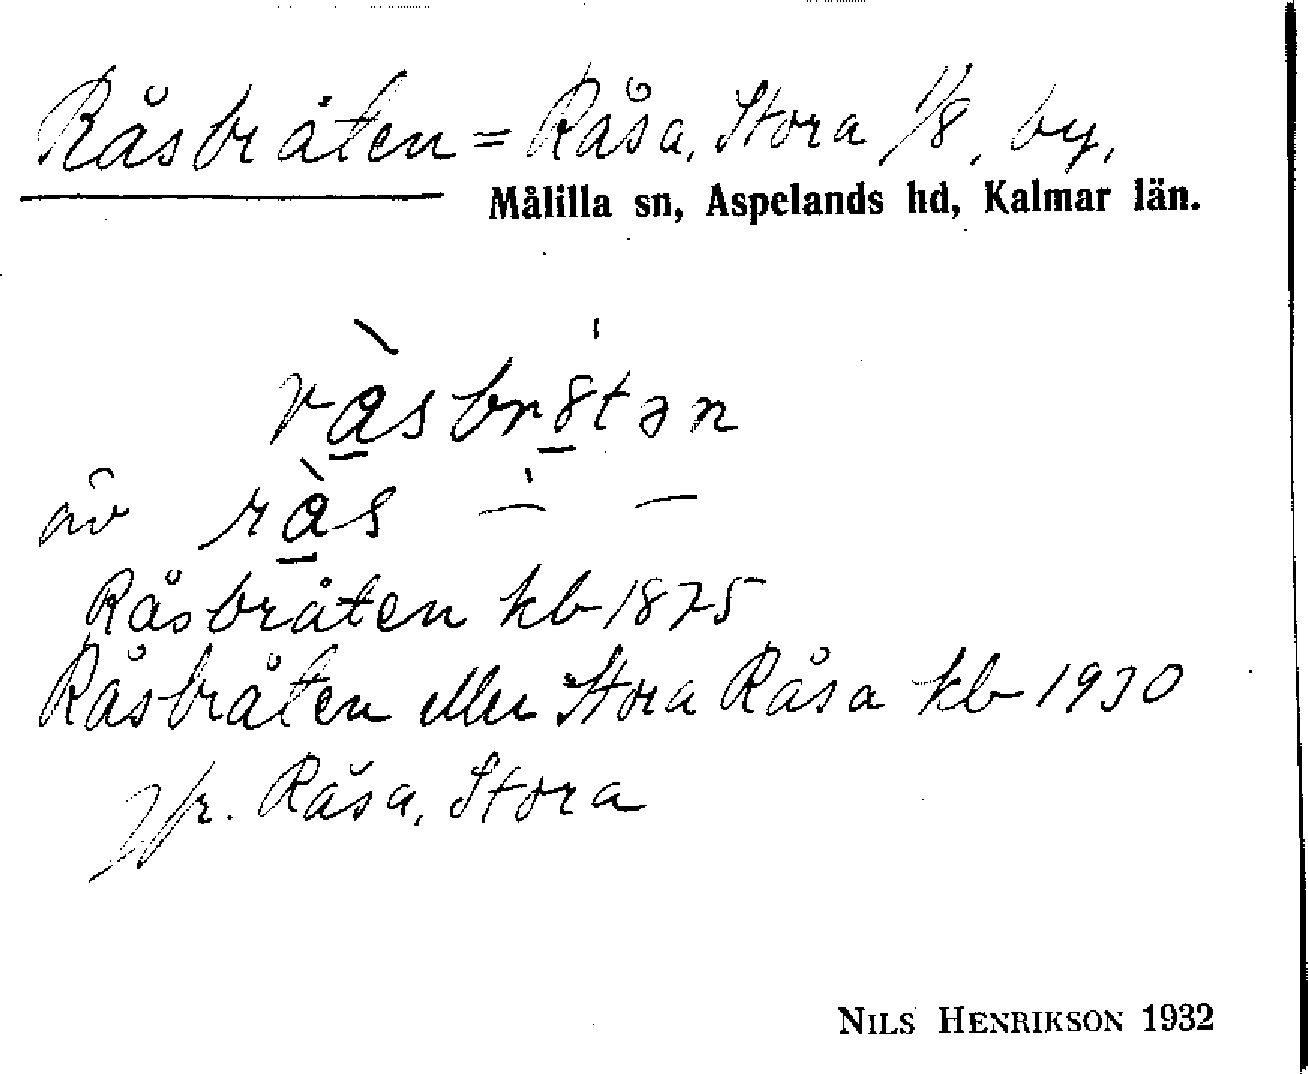 Råsbråten = Råsa, Stora 1/8, by,
Målilla sn, Aspelands hd, Kalmar län.
ràsbrätən
äv ràs – –
Råsbråten kb 1875
Råsbråten eller Stora Råsa kb 1930
Jfr. Råsa, Stora
NILS HENRIKSON 1932